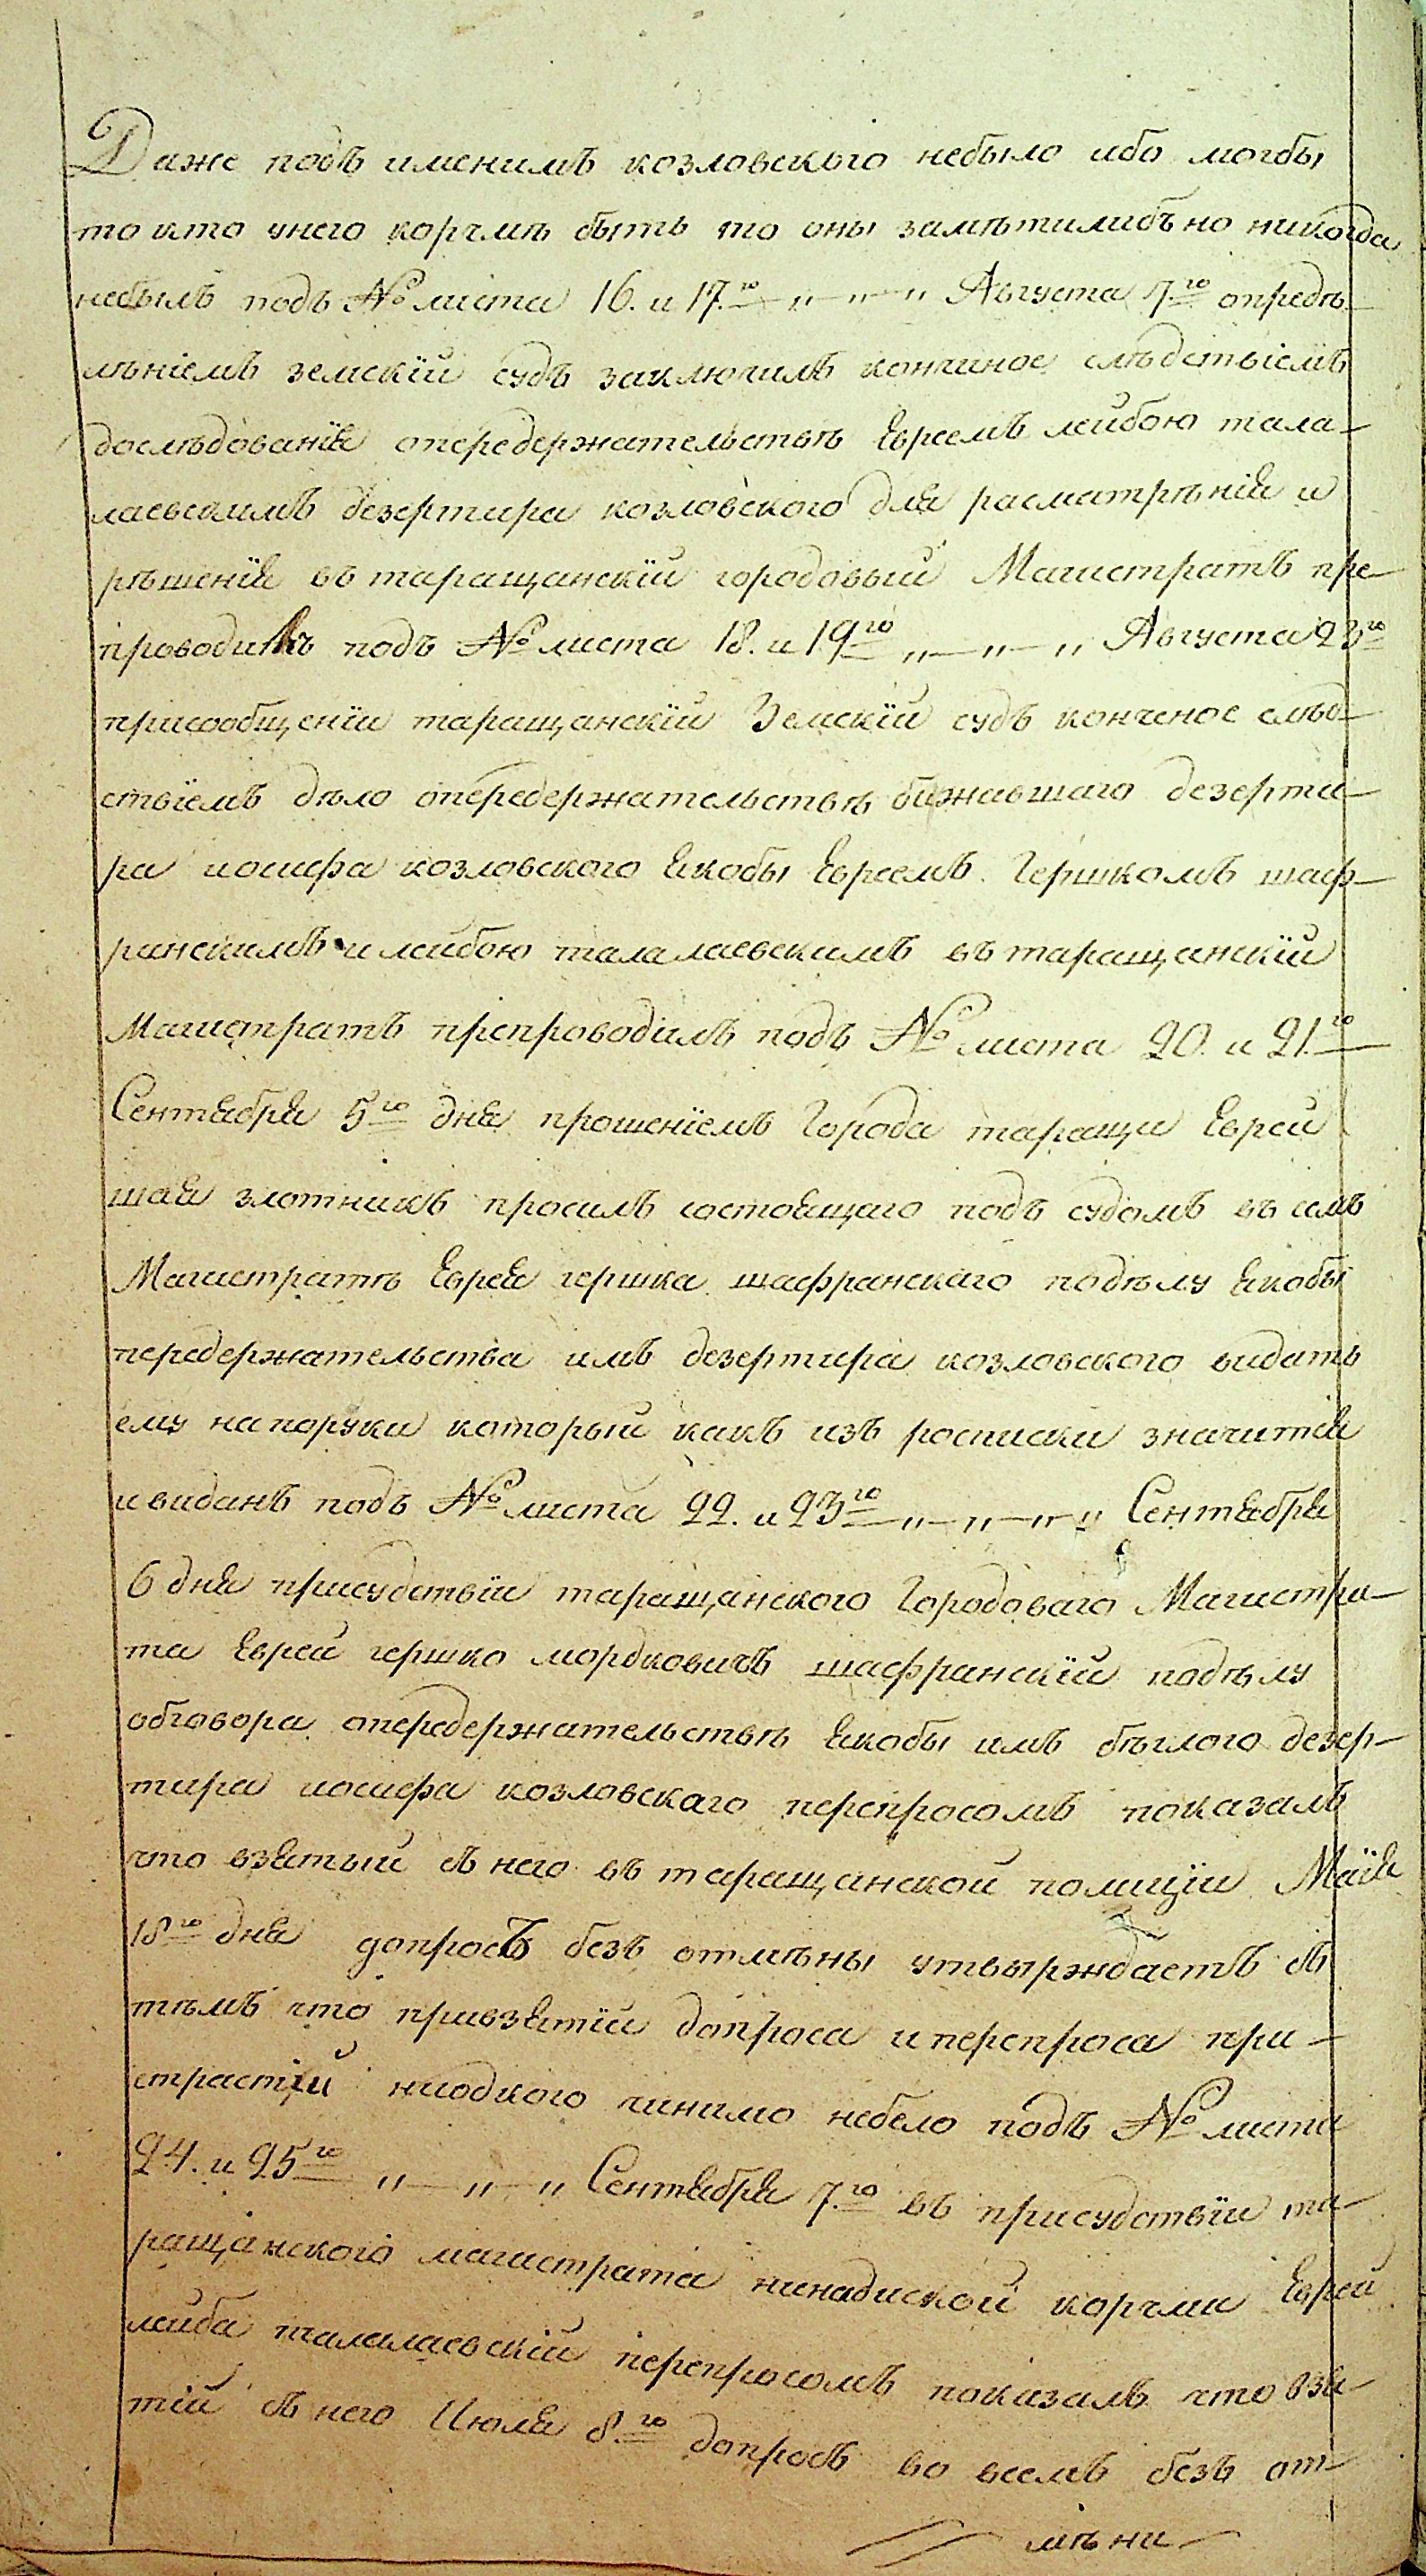 Даже подъ именимъ козловскыго небыло ибо могбы
то кто унего корчмѣ быть то оны замѣтилибъ но никогда
небылъ подъ № листа 16. и 17.го „ „ „ Августа 7.го опредѣ-
лѣніемъ земскїй судъ заключилъ кончиное слѣдствіемъ
дослѣдованїе опередержательствѣ Евреемъ лейбою тала-
лаевскимъ дезертира козловского для расматрѣнія и
рѣшенїя въ таращанскїй городовый Магистратъ пре-
проводилъ подъ № листа 18. и 19го „ „ „ Августа 23го
присообщенїи таращанскїй Земскїй судъ конченое слѣд-
ствїемъ дѣло опередержательствѣ бижавшаго дезерти-
ра иосифа козловского якобы Евреемъ Гершкомъ шаф-
ранскимъ и лейбою талалаевскимъ въ таращанскїй
Магистратъ препроводилъ подъ № листа 20. и 21.го
Сентября 5го дня прошенїемъ Города таращи Еврей
шая злотникъ просилъ состоящаго подъ судомъ въ семъ
Магистратѣ Еврея гершка шафранскаго подѣлу якобы
передержательства имъ дезертира козловского видать
ему напоруки который какъ изъ росписки значится
и виданъ подъ № листа 22. и 23го „ „ „ „ Сентября
6 дня присудствїи таращанского Городоваго Магистра-
та Еврей гершко мордковичъ шафранскїй подѣлу
обговора опередержательствѣ якобы имъ бѣглого дезер-
тира иосифа козловскаго перепросомъ показалъ
что взятый съ него въ таращанской полицїи Маїя
18го дня допросъ безъ отмѣны утвырждаетъ съ
тѣмъ что привзятїи допроса и перепроса при-
страстїй ниодкого чинимо небело подъ № листа
24. и 25го „ „ „ Сентября 7.го въ присудствїи та-
ращанского магистрата ненадиской корчми Еврей
лейба талалаевскїй перепросомъ показалъ что взя-
тїй съ него Июля 8.го допросъ во всемъ безъ от-
мѣни